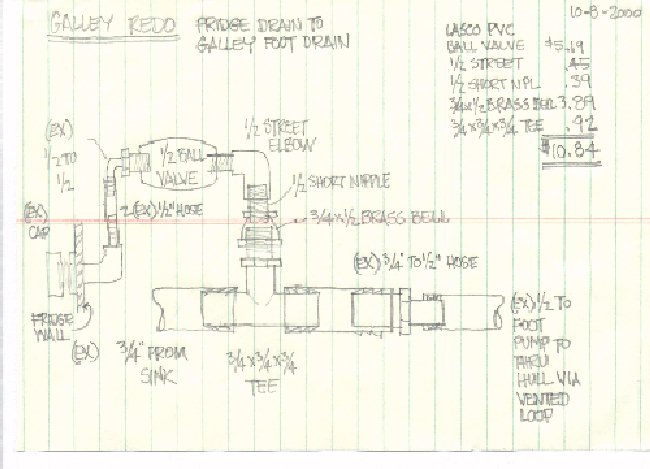 10-8-2000
GALLEY REDO
FRIDGE DRAIN TO
GALLEY FOOT DRAIN
LASCO PVC
BALL VALVE $5.19
1/2 STREET .45
1/2 SHORT NPL .39
3/4x1/2 BRASS BELL 3.89
3/4x3/4x3/4 TEE .92
$10.84
(EX)
1/2 TO
1/2
1/2 BALL
VALVE
1/2 STREET
ELBOW
1/2 SHORT NIPPLE
(EX)
CAP
(EX) 1/2" HOSE
3/4x1/2 BRASS BELL
(EX) 3/4" TO 1/2" HOSE
FRIDGE
WALL
(EX) 3/4" FROM
SINK
3/4x3/4x3/4
TEE
(EX) 1/2 TO
FOOT
PUMP TO
THRU
HULL VIA
VENTED
LOOP